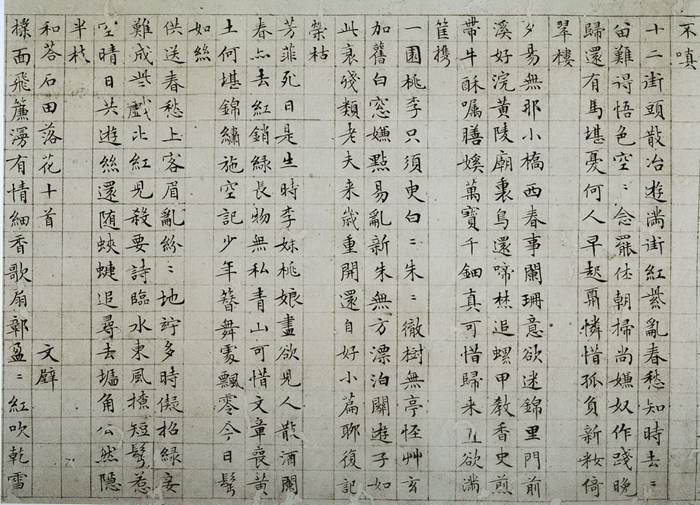 不嗔
十二街頭散冶遊滿街紅紫亂春愁知時去〻
畄難得悟色空〻念罷仕朝掃尚嫌奴作踐晚
歸還有馬堪憂何人早起憐惜孤負新粧倚
翠樓
夕易無那小橋西春事闌珊意欲迷錦里門前
溪好浣黃陵廟裏鳥還啼焚追螺甲教香史煎
帶牛酥囑膳媛萬寶千鈿真可惜歸来欲滿
筐携
一園桃李只須臾白〻朱〻徹樹無亭怪艸玄
加舊白窓嫌點易亂新朱無方漂泊關遊子如
此衰殘類老夫来歲重開還自好小篇聊復記
榮枯
芳菲死日是生時李妹桃娘盡欲兒人散酒闌
春亦去紅銷綠長物無私青山可惜文章喪黃
土何堪錦繡施空記少年簪舞處飄零今日鬢
如絲
供送春愁上客眉亂紛〻地竚多時儗招綠妾
難成些戲比紅兒殺要詩臨水東風撩短鬢惹
空晴日共遊絲還随蛺蜨追尋去墻角公然隱
半枝
和荅石田落花十首 文壁
撲面飛簾漫有情細香歌扇鄣盈〻紅吹乾雪